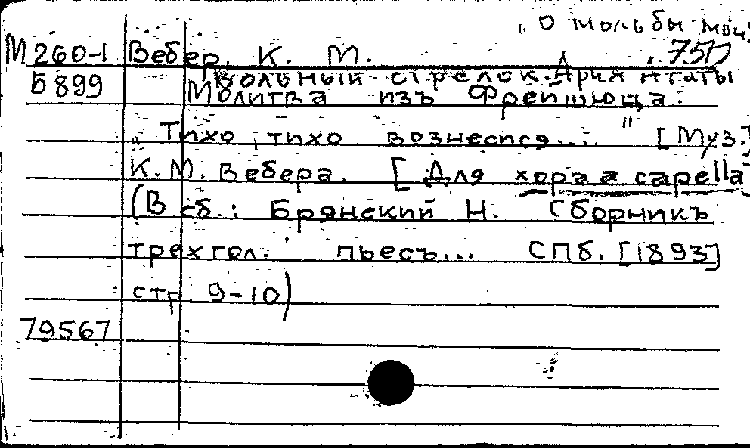 „О мольбы мои
М260-1 Вебер, К. М. 757
Б899 Вольный стрелок. Ария Агаты
Молитва изъ Фрейшюца.
„Тихо, тихо вознесися...." [Муз.]
К. М. Вебера. [Для хора a capella]
(В сб.: Брянский Н. Сборникъ
трехгол. пьесъ... СПб. [1893]
стр. 9-10)
79567